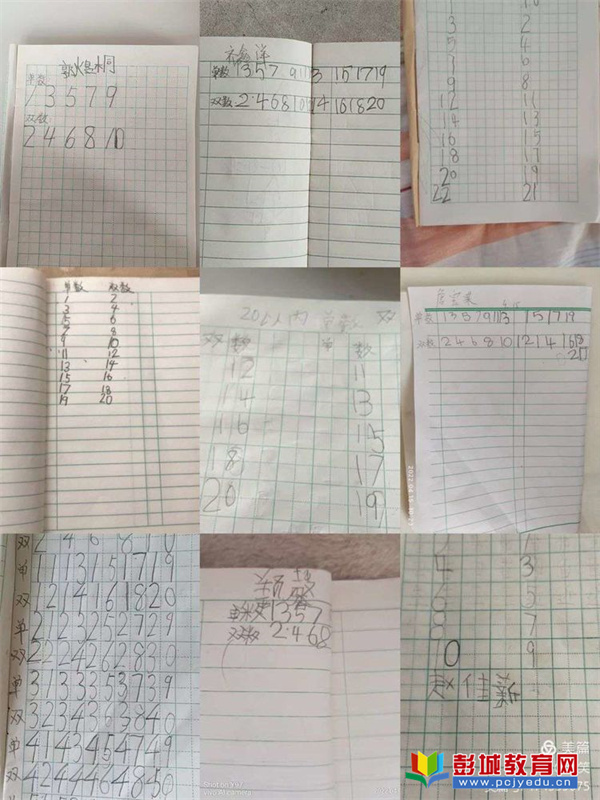 单数
1 3 5 7 9
双数
2 4 6 8 10
单数 1 3 5 7 9 11 13 15 17 19
双数 2·4 6 8 10 14 16 18 20
1 2
3 2
5 4
7 6
9 8
12 11
14 13
16 15
18 17
20 19
22 21
单数 双数
1 2
3 4
5 6
7 8
9 10
11 12
13 14
15 16
17 18
19 20
20以内 单数 双
双数 单数
12 11
14 13
16 15
18 17
20 19
单数 1 3 5 7 9 11 13 15 17 19
双数 2 4 6 8 10 12 14 16 18
20
双 2 4 6 8 10
单 11 13 15 17 19
双 12 14 16 18 20
单 21 23 25 27 29
双 22 24 26 28 30
单 31 33 35 37 39
双 32 34 36 38 40
单 41 43 45 47 49
双 42 44 46 48 50
单数 1 3 5 7
双数 2·4 6 8
4 3
6 5
8 7
0 9
赵佳
美篇
彭城教育网
www.pcjyedu.cn